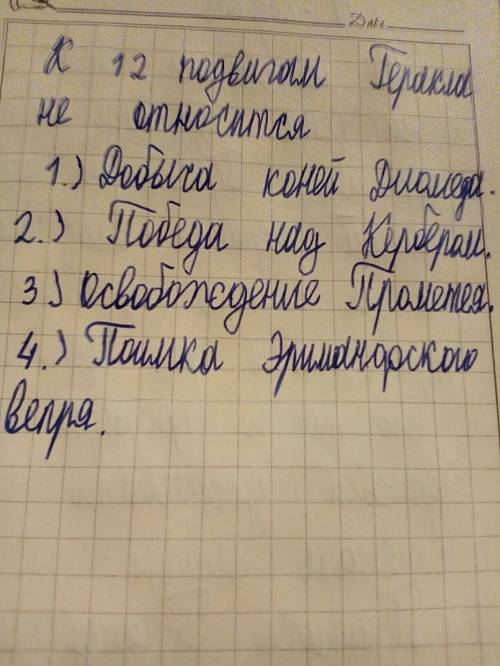 Date
К 12 подвигам Геракла
не относится
1.) Добыча коней Диомеда.
2.) Победа над Кербером.
3) Освобождение Прометея.
4.) Поимка Эримандского
вепря.